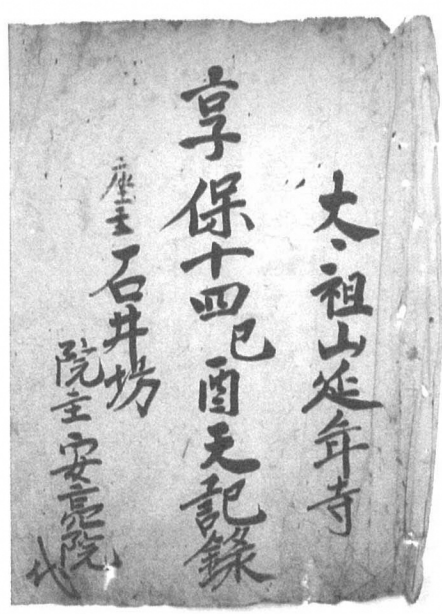 太祖山延年寺
享保十四己酉天記録
座主石井坊
院主安亮院代